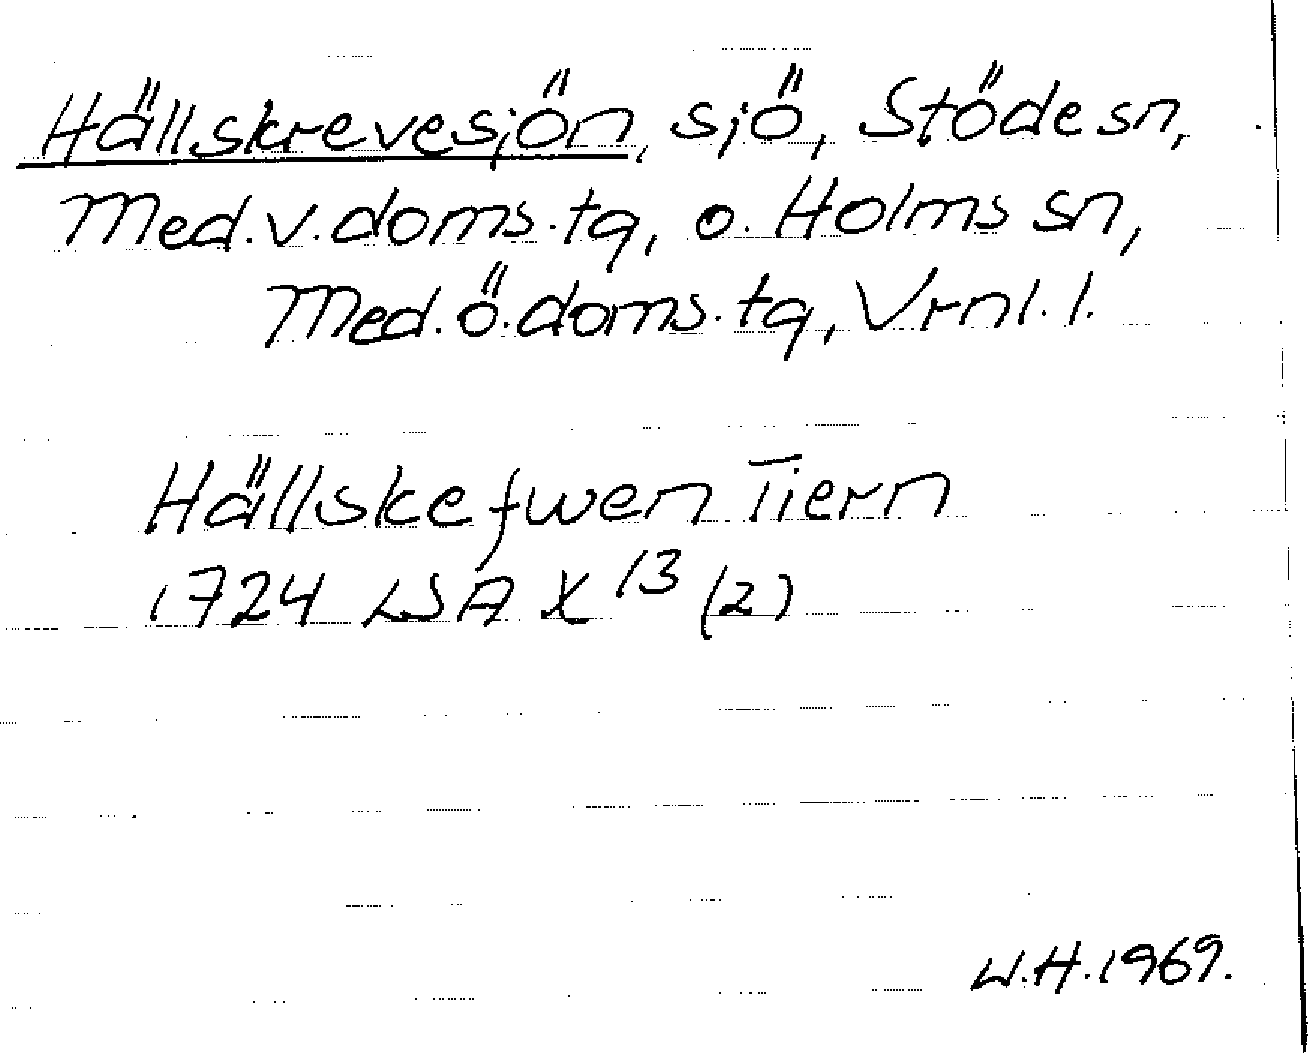 Hällskrevesjön, sjö, Stöde sn,
Med.v.doms.tg, o. Holms sn,
Med.ö.doms.tg, Vrnl.l.
Hällskefwen Tiern
1724 LSA X 13 (2)
W.H.1969.